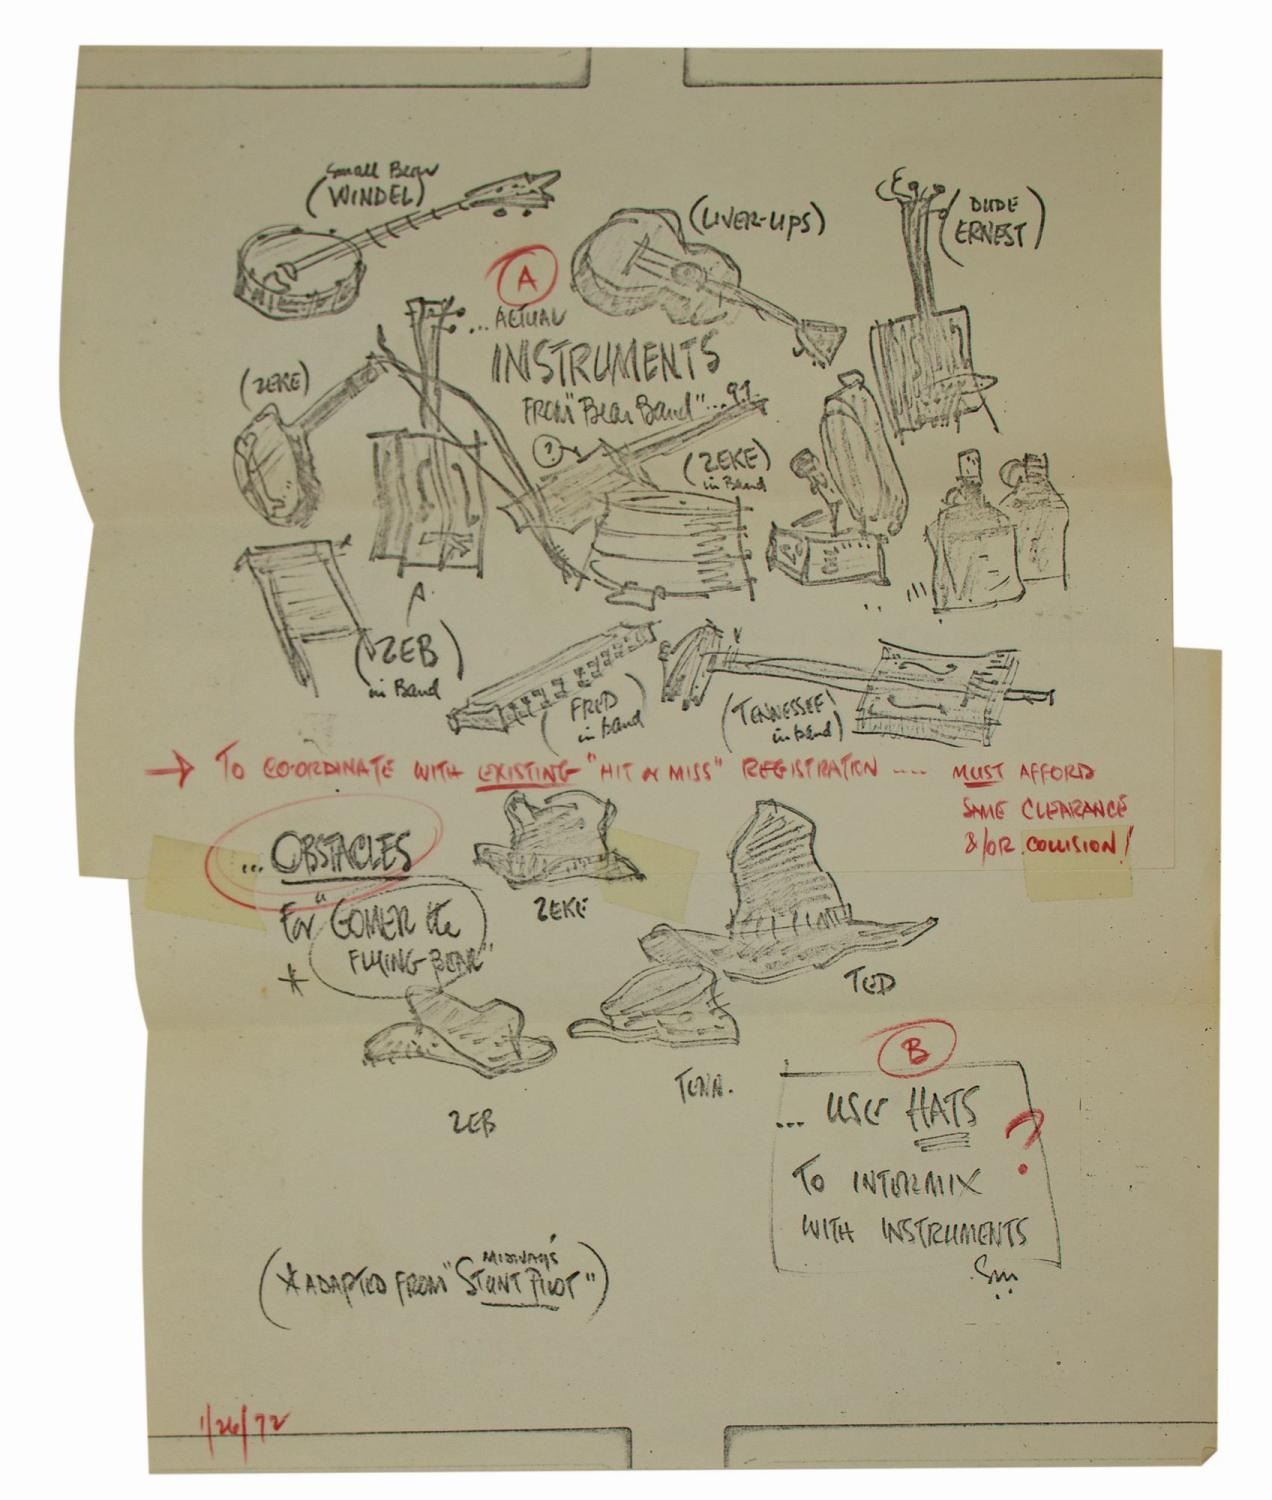 Small Bear
(WINDEL)
(LIVER-LIPS)
(DUDE
ERNEST)
A
... ACTUAL
INSTRUMENTS
FROM "Bear Band"...
(ZEKE)
?
(ZEKE)
in Band
(ZEB
in Band)
(FRED
in band)
(TENNESSEE
in band)
→ TO CO-ORDINATE WITH EXISTING "HIT or MISS" REGISTRATION .... MUST AFFORD
SAME CLEARANCE
&/OR COLLISION!
... OBSTACLES
For "GOMER the
FLYING BEAR"
*
ZEKE
TED
ZEB
TENN.
B
... USE HATS ?
TO INTERMIX
WITH INSTRUMENTS
(* ADAPTED FROM MIDWAY'S "STUNT PILOT")
1/26/72